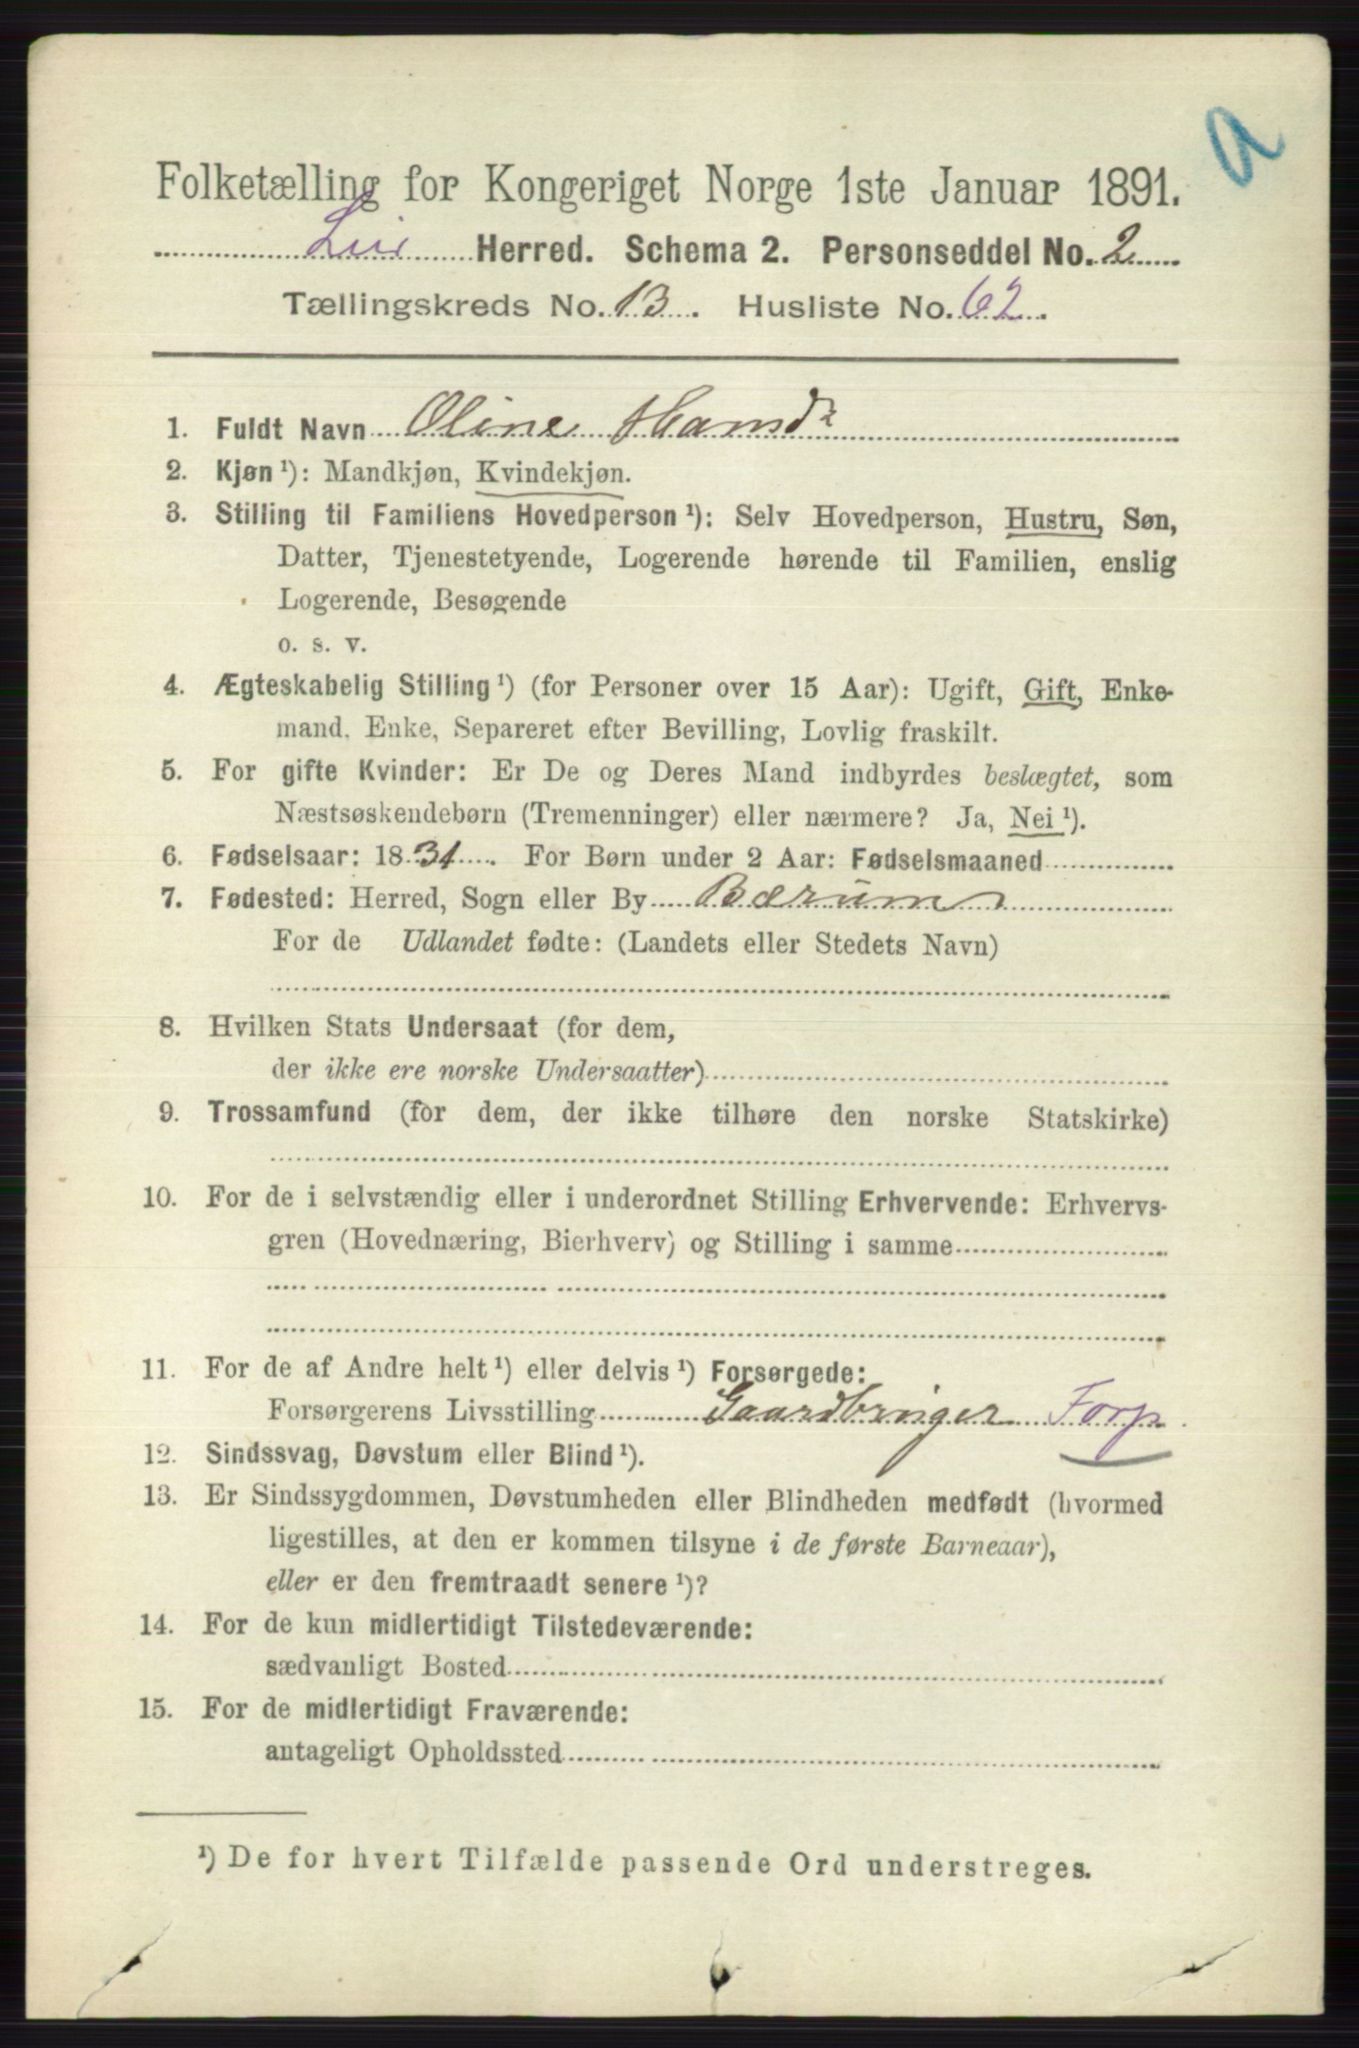 a
Folketælling for Kongeriget Norge 1ste Januar 1891.
Lier Herred. Schema 2. Personseddel No. 2
Tællingskreds No. 13. Husliste No. 62.
1. Fuldt Navn Oline Hansdr
2. Kjøn ¹): Mandkjøn, Kvindekjøn.
3. Stilling til Familiens Hovedperson ¹): Selv Hovedperson, Hustru, Søn,
Datter, Tjenestetyende, Logerende hørende til Familien, enslig
Logerende, Besøgende
o. s. v.
4. Ægteskabelig Stilling ¹) (for Personer over 15 Aar): Ugift, Gift, Enke-
mand, Enke, Separeret efter Bevilling, Lovlig fraskilt.
5. For gifte Kvinder: Er De og Deres Mand indbyrdes beslægtet, som
Næstsøskendebørn (Tremenninger) eller nærmere? Ja, Nei ¹).
6. Fødselsaar: 1831. For Børn under 2 Aar: Fødselsmaaned
7. Fødested: Herred, Sogn eller By Bærum
For de Udlandet fødte: (Landets eller Stedets Navn)
8. Hvilken Stats Undersaat (for dem,
der ikke ere norske Undersaatter)
9. Trossamfund (for dem, der ikke tilhøre den norske Statskirke)
10. For de i selvstændig eller i underordnet Stilling Erhvervende: Erhvervs-
gren (Hovednæring, Bierhverv) og Stilling i samme
11. For de af Andre helt ¹) eller delvis ¹) Forsørgede:
Forsørgerens Livsstilling Gaardbruger Forp.
12. Sindssvag, Døvstum eller Blind ¹).
13. Er Sindssygdommen, Døvstumheden eller Blindheden medfødt (hvormed
ligestilles, at den er kommen tilsyne i de første Barneaar),
eller er den fremtraadt senere ¹)?
14. For de kun midlertidigt Tilstedeværende:
sædvanligt Bosted
15. For de midlertidigt Fraværende:
antageligt Opholdssted
¹) De for hvert Tilfælde passende Ord understreges.